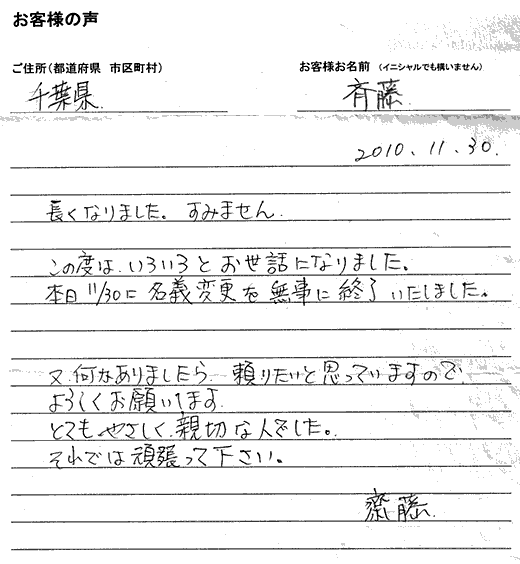 お客様の声
ご住所(都道府県 市区町村)
お客様お名前 (イニシャルでも構いません)
千葉県.
斉藤
2010.11.30.
長くなりました。すみません.
この度は.いろいろとお世話になりました。
本日11/30に名義変更を無事に終了いたしました。
又.何なありましたら.頼りたいと思っていますので.
よろしくお願いします.
とてもやさしく.親切な人でした。
それでは頑張って下さい。
齋藤.